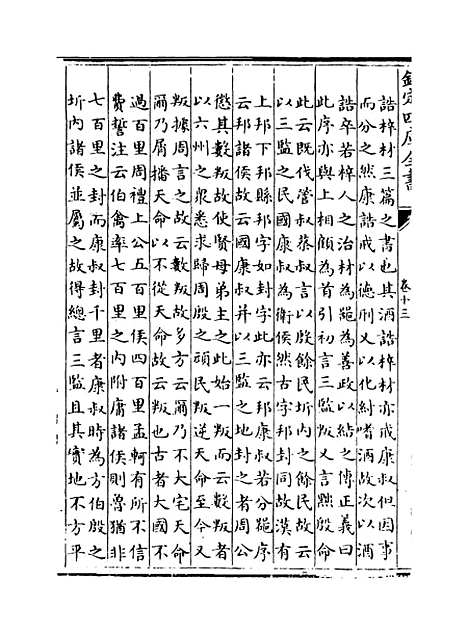 欽定四庫全書
卷十三
誥梓材三篇之書也其酒誥梓材亦戒康叔但因事
而分之然康誥戒以德刑又以化紂嗜酒故次以酒
誥卒若梓人之治材為器為善政以結之傳正義曰
此序亦與上相顧為首引初言三監叛又言黜殷命
此云既伐管叔蔡叔言以殷餘民圻內之餘民故云
以三監之民國康叔為衛侯然古字邦封同故漢有
上邦下邦縣邦字如封字此亦云邦康叔若分器序
云邦諸侯故云國康叔并以三監之地封之者周公
懲其數叛故使賢母弟主之此始一叛而云數叛者
以六州之衆悉求歸周殷之頑民叛逆天命至今又
叛據周言之故云數叛故多方云爾乃不大宅天命
爾乃屑播天命以不從天命故云叛也古者大國不
過百里周禮上公五百里侯四百里孟軻有所不信
費誓注云伯禽率七百里之內附庸諸侯則魯猶非
七百里之封而康叔封千里者康叔時為方伯殷之
圻內諸侯並屬之故得總言三監且其實地不方平